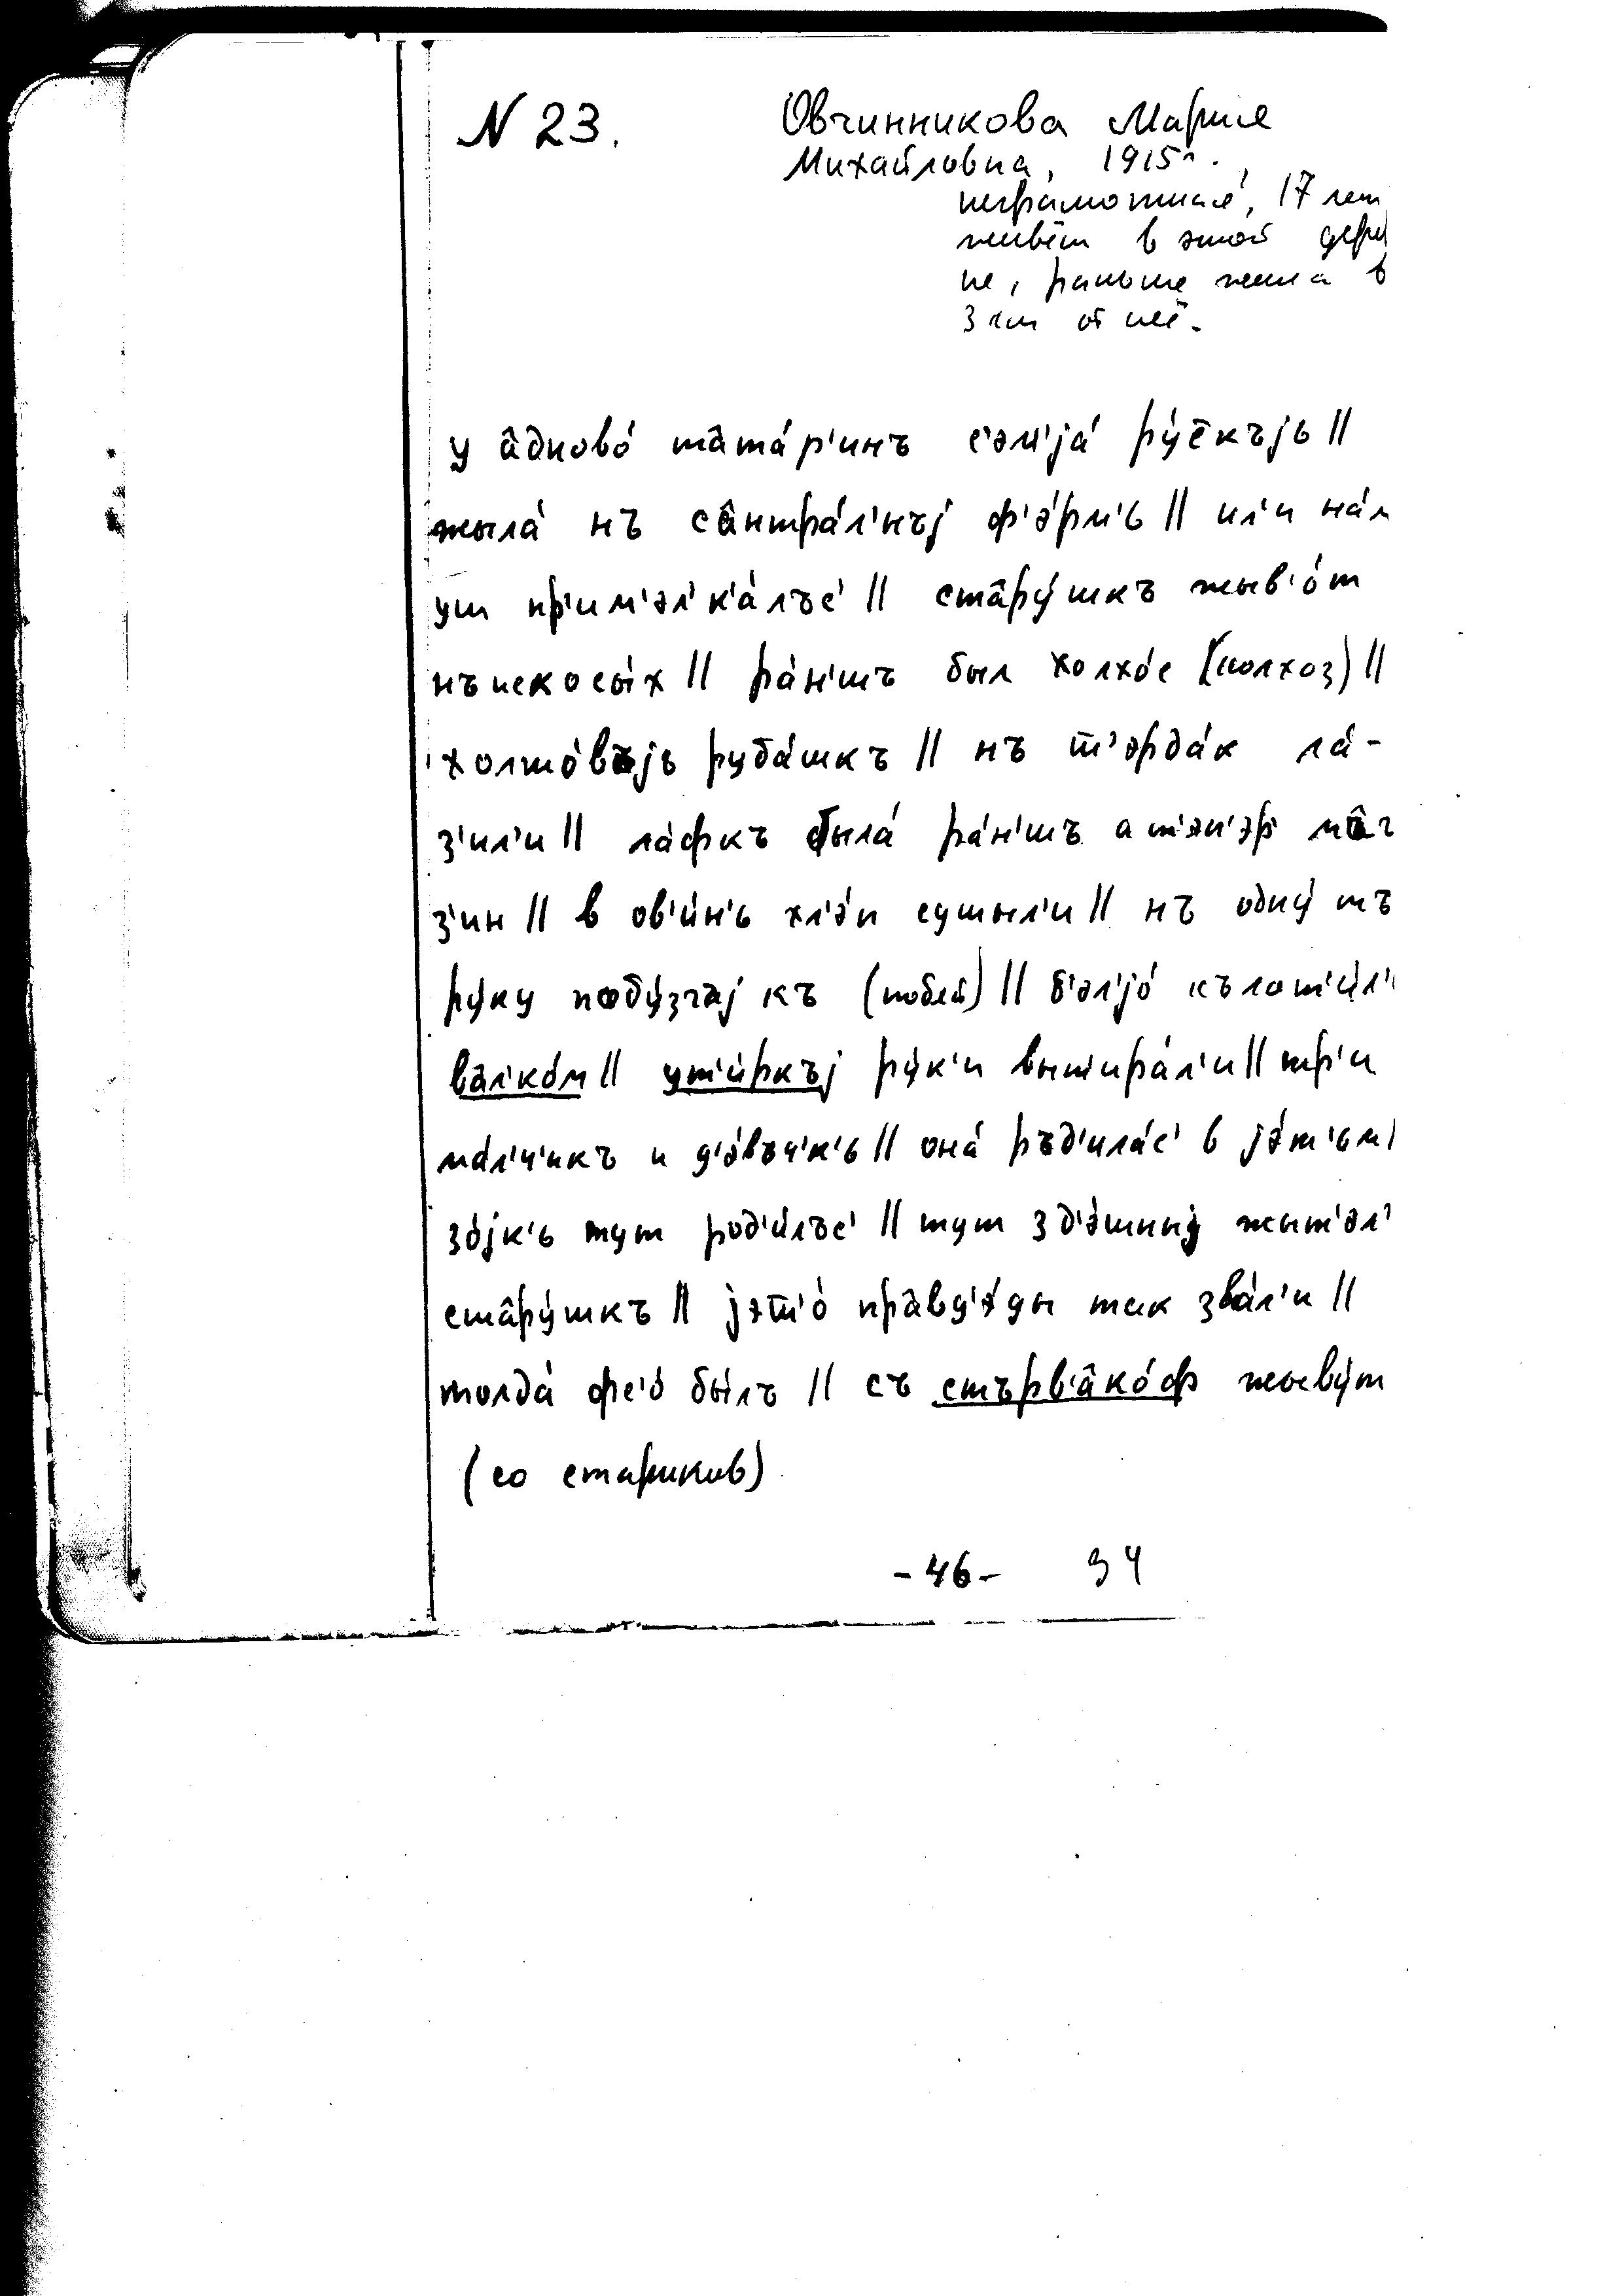 N 23. Овчинникова Мария
Михайловна, 1915г.,
неграмотная, 17 лет
живёт в этой дерев
не, раньше жила в
3 км от неё.
у а̂дново́ та̂та́р'инъ с'эм'jа́ ру́с̄къjь ||
жыла́ нъ са̂нтра́л'нъj ф'э́рм'ь || ил'и на́м
уш пр'им'эл'к'а́лъс' || ста̂ру́шкъ жыв'о́т
нъискосы́х || ра́н'шъ был холхо́с (колхоз) ||
холшо́въjь руба́шкъ || нъ т̄'эрда́к ла́-
з'ил'и || ла́фкъ была́ ра́н'шъ а т'эп'эр' ма̂г
з'ин || в ов'и́н'ь хл'э́п сушыл'и || нъ одну́ тъ
ру́ку поду́згъj къ (побей) || б'эл'jо́ кълот'и́л'и
вал'ко́м || ут'и́ркъj ру́к'и выт'ира́л'и || тр'и
ма́л'ч'икъ и д'э́въч'к'ь || она́ ръд'ила́с' в jэ́т'ьм
зо́jк'ь тут род'и́лъс' || тут зд'э́шныj жыт'эл'
ста̂ру́шкъ || jэт̄'о́ пра̂вд'э́ды так зва́л'и ||
толда́ фс'о́ бы́лъ || съ стърв'а̂ко́ф жыву́т
(со стариков)
-46- 34